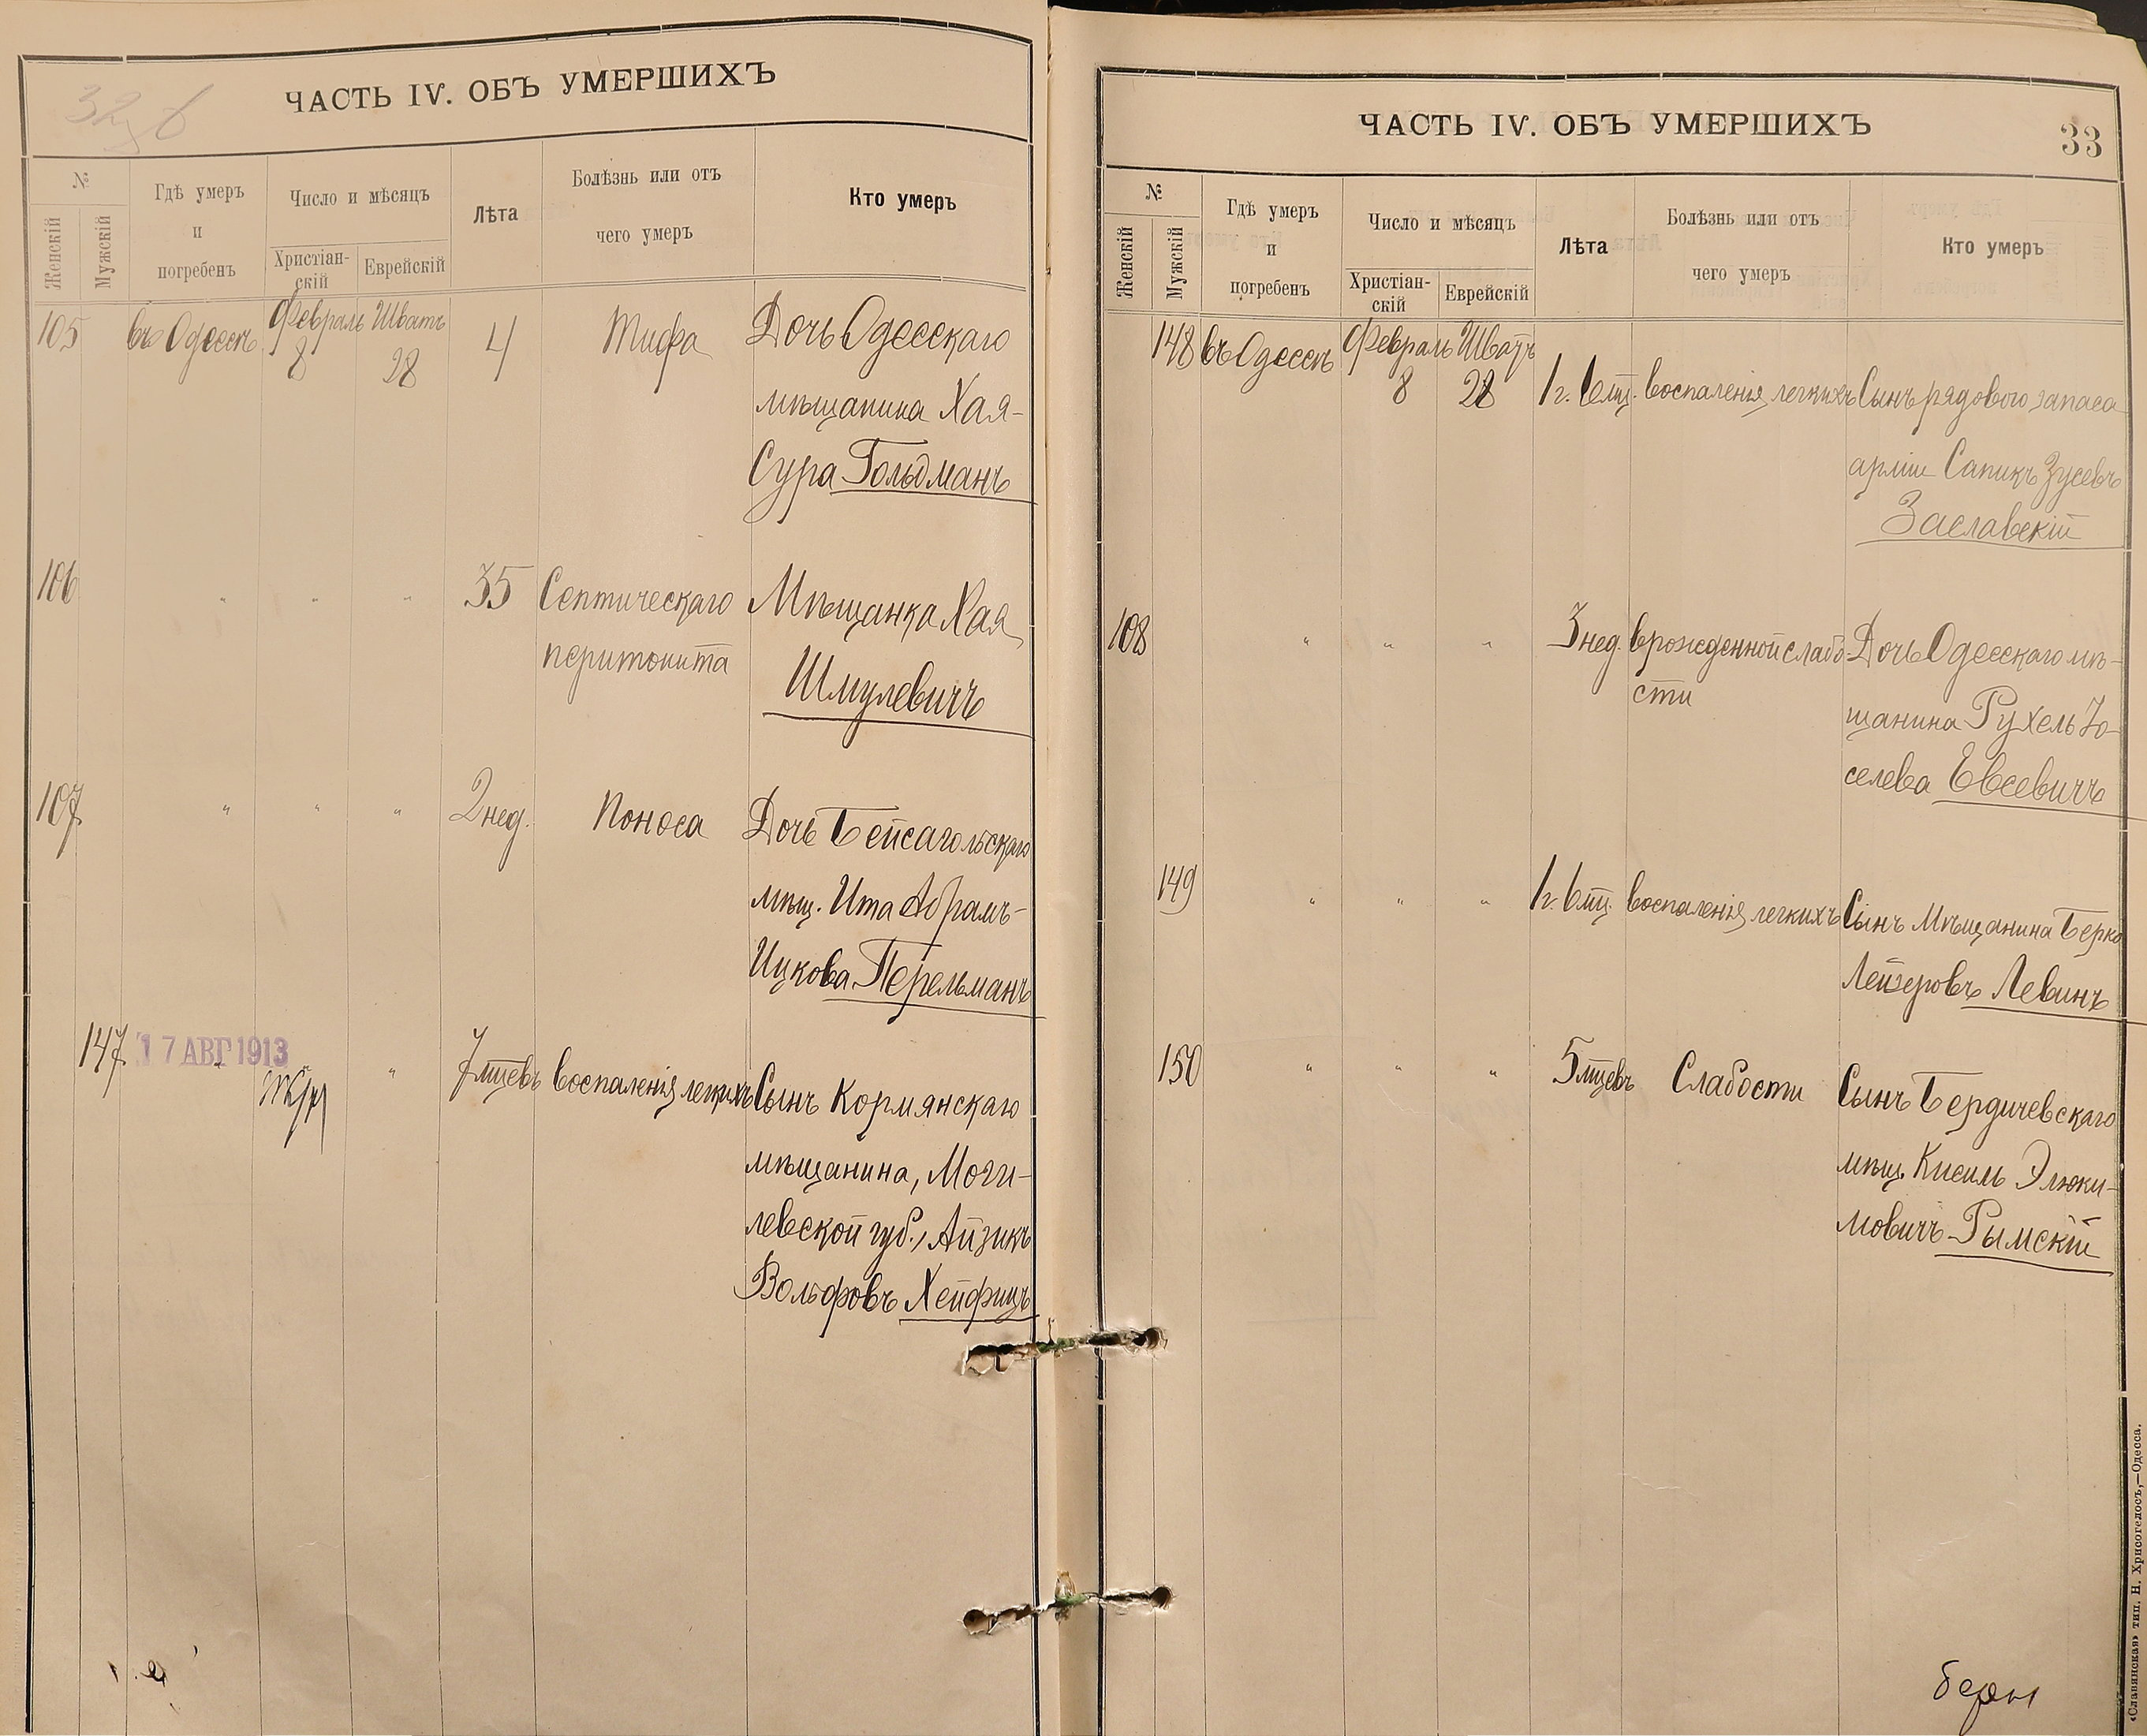 ЧАСТЬ IV. ОБЪ УМЕРШИХЪ
№
Женскій
Мужскій
Гдѣ умеръ
и
погребенъ
Число и мѣсяцъ
Христіан-
скій
Еврейскій
Лѣта
Болѣзнь или отъ
чего умеръ
Кто умеръ
105 въ Одессѣ Февраль Шватъ
8 28 4 Тифа Дочь Одесскаго
мѣщанина Хая-
Сура Гольдманъ
106 " " " 35 Септическаго Мѣщанка Хая
перитонита Шмулевичъ
107 " " " 2 нед. Поноса Дочь Бейсагольскаго
мѣщ. Ита Абрамъ-
Ицкова Перельманъ
147 17 АВГ 1913 " 7 мцевъ воспаленія легкихъ Сынъ Кормянскаго
мѣщанина, Моги-
левской губ., Айзикъ
Вольфовъ Хейфицъ
ЧАСТЬ IV. ОБЪ УМЕРШИХЪ
33
№
Женскій
Мужскій
Гдѣ умеръ
и
погребенъ
Число и мѣсяцъ
Христіан-
скій
Еврейскій
Лѣта
Болѣзнь или отъ
чего умеръ
Кто умеръ
148 въ Одессѣ Февраль Шватъ
8 28 1 г. 6 мц. воспаленія легкихъ Сынъ рядового запаса
арміи Сапикъ Зусевъ
Заславскій
108 " " " 3 нед. врожденной слабо- Дочь Одесскаго мѣ-
сти щанина Рухель Іо-
селева Евсевичъ
149 " " " 1 г. 6 мц. воспаленія легкихъ Сынъ Мѣщанина Берко
Лейзеровъ Левинъ
150 " " " 5 мцевъ Слабости Сынъ Бердичевскаго
мѣщ. Кисиль Элюки-
мовичъ Рымскій
«Славянская» тип. Н. Хрисогелосъ,—Одесса.